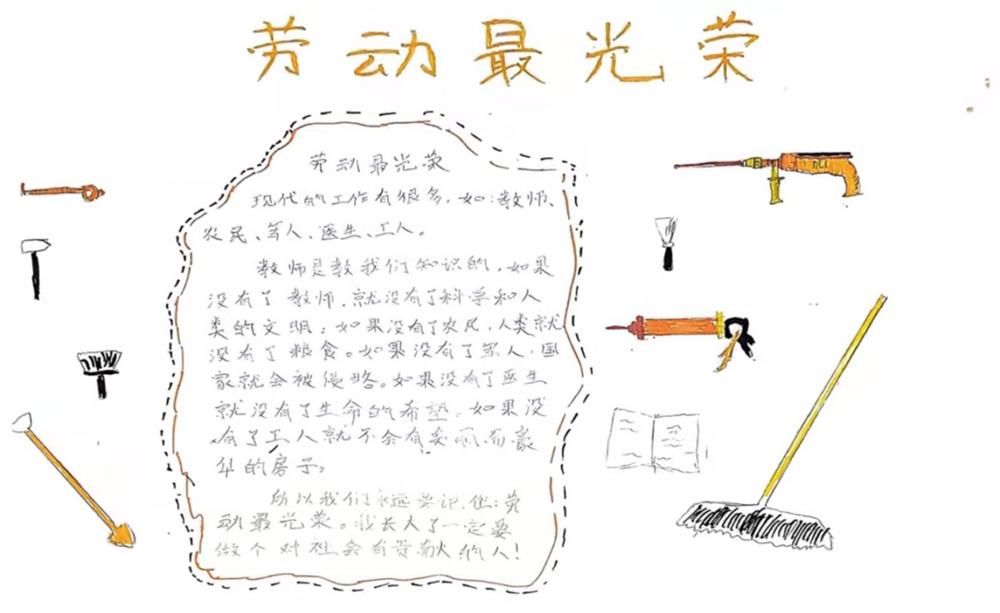 劳动最光荣
劳动最光荣
现代的工作有很多，如：教师、
农民、军人、医生、工人。
教师是教我们知识的，如果
没有了教师，就没有了科学和人
类的文明；如果没有了农民，人类就
没有了粮食。如果没有了军人，国
家就会被侵略。如果没有了医生
就没有了生命的希望。如果没
有了工人就不会有美丽而豪
华的房子。
所以我们永远要记住：劳
动最光荣。我长大了一定要
做个对社会有贡献的人！